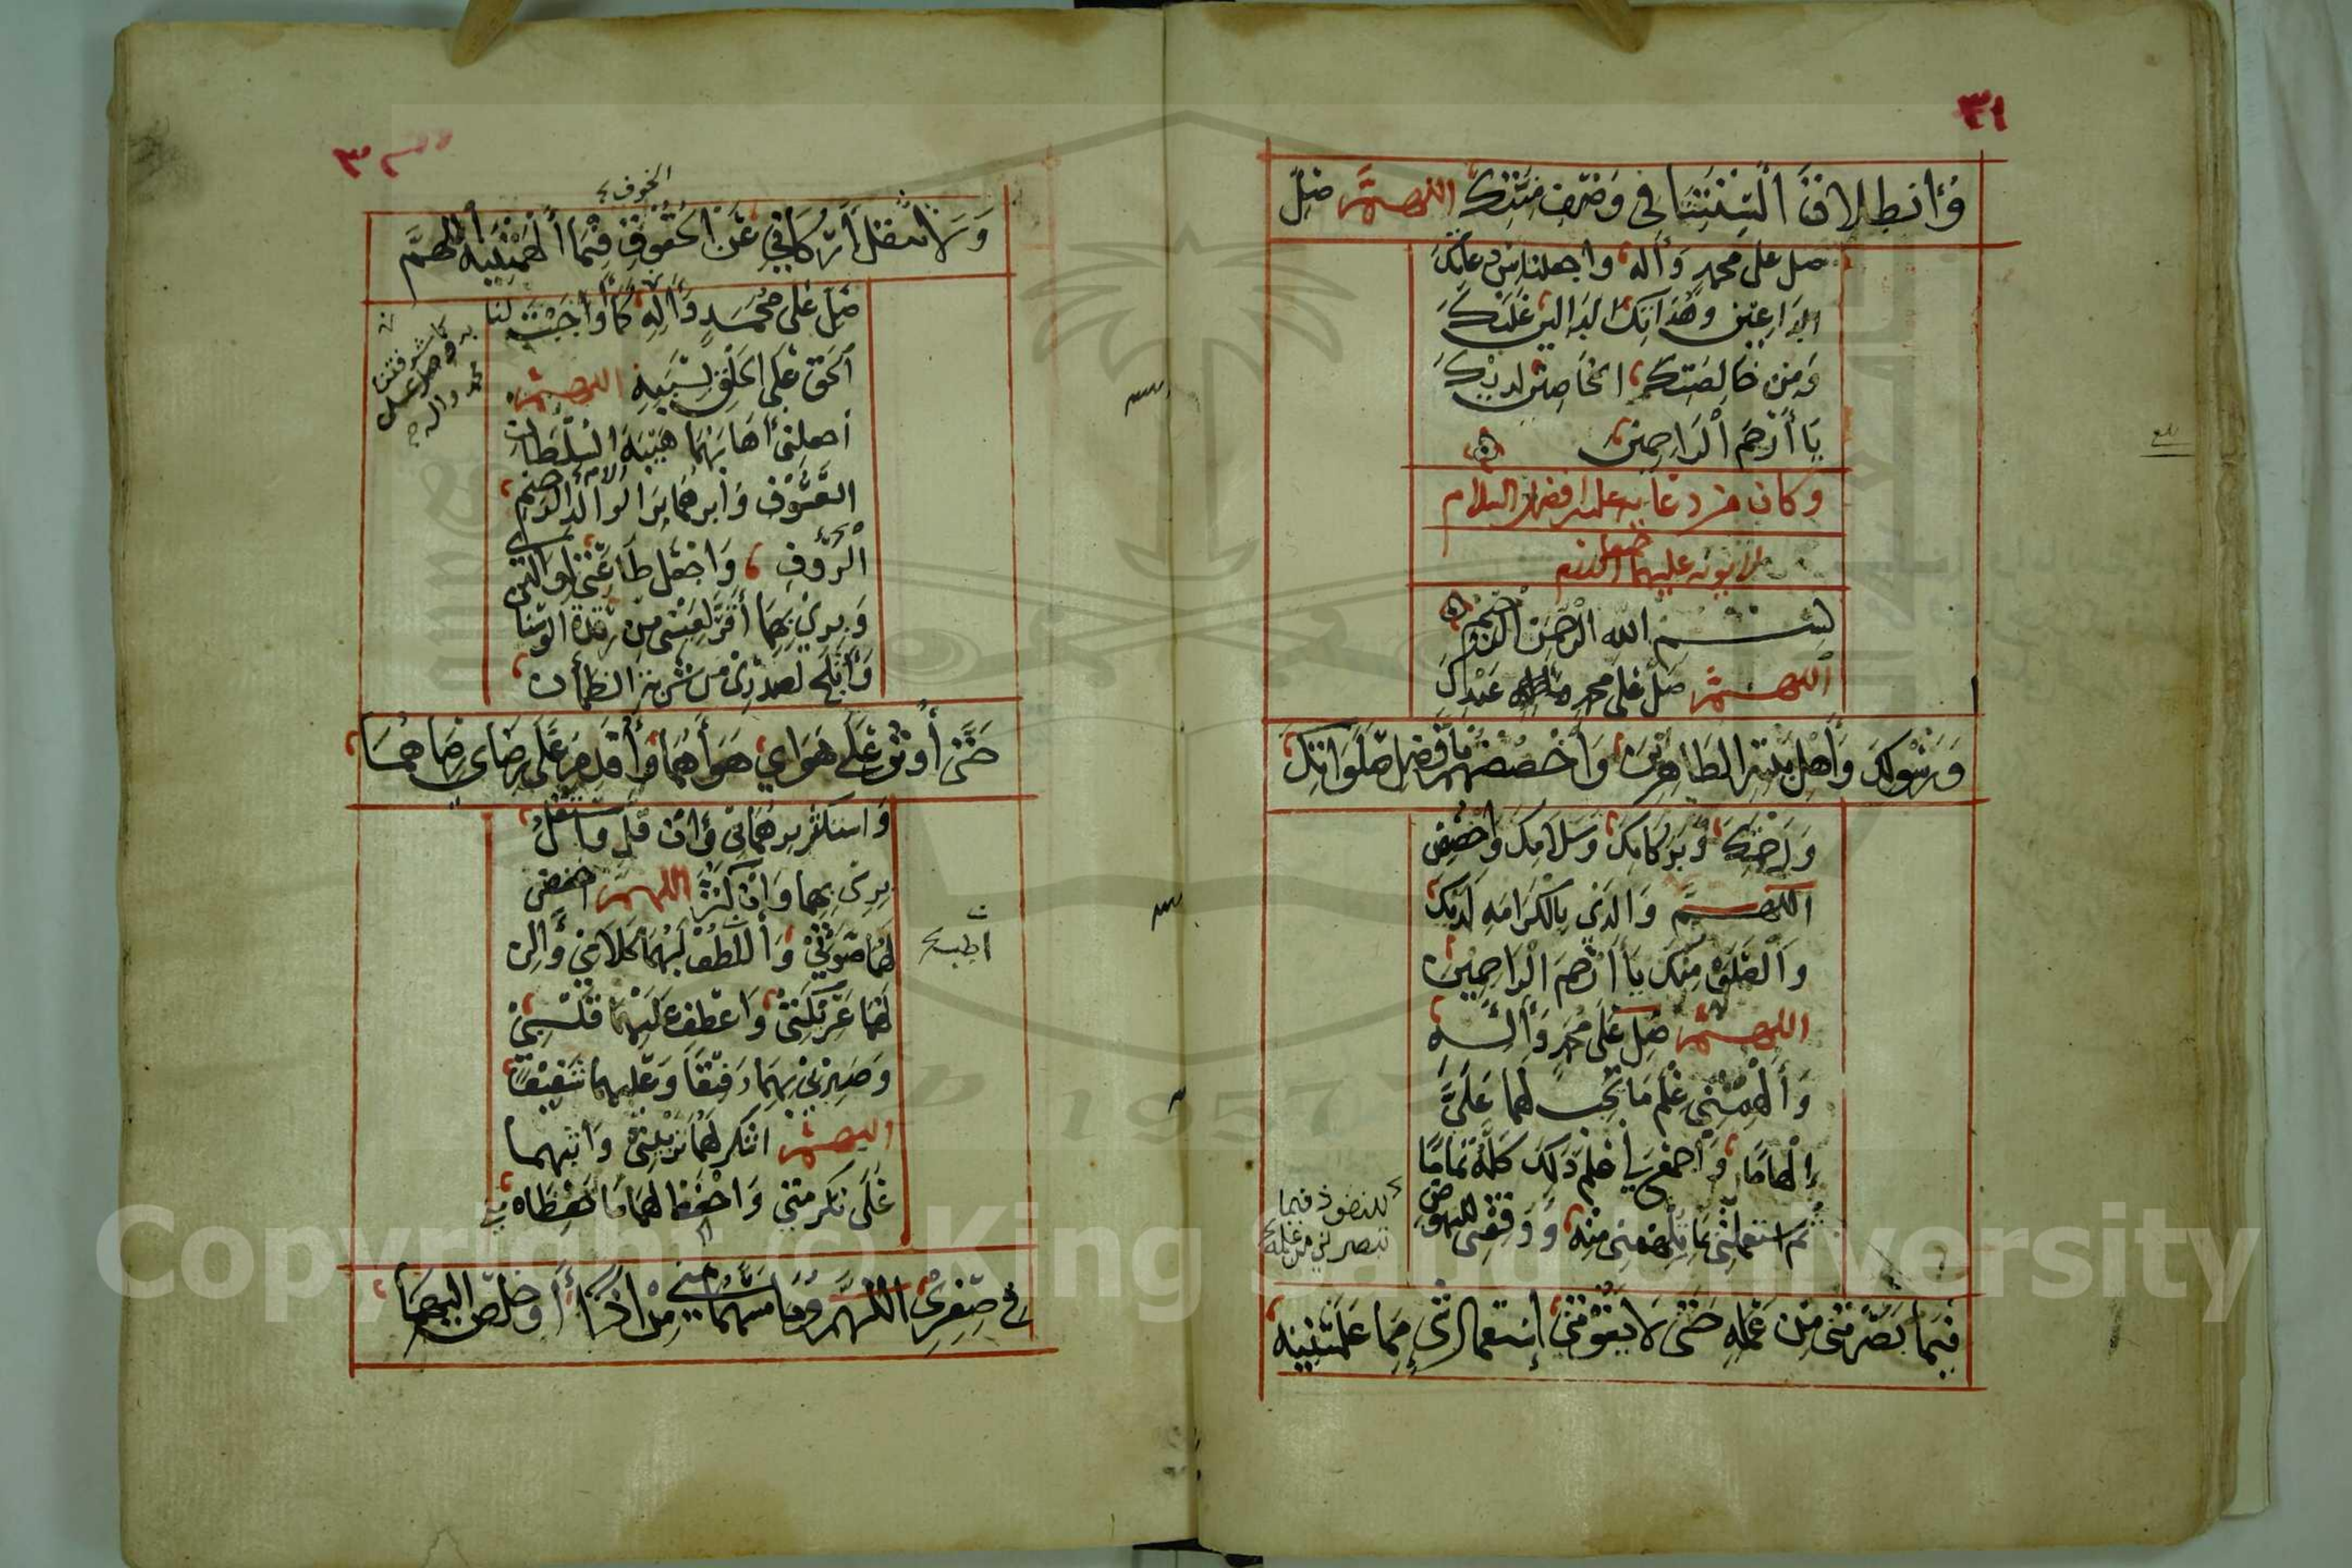 ٣١
وَانطِلَاقَ أَلْسِنَتِنَا فِي وَصْفِ مِنَّتِكَ اللهم صل
صل على محمد وآله واجعلنا من دعاتك
الداعين وهداتك الدالين عليك
ومن خاصتك الخاصين لديك
يا أرحم الراحمين
وكان من دعائه عليه افضل السلام
لابويه عليهما السلام
بسم الله الرحمن الرحيم
اللهم صل على محمد عبدك
ورسولك وأهل بيته الطاهرين واخصصهم بأفضل صلواتك
ورحمتك وبركاتك وسلامك واخصص
اللهم والدي بالكرامة لديك
والصلوة منك يا أرحم الراحمين
اللهم صل على محمد وآله
وألهمني علم ما يجب لهما علي
إلهاما واجمع لي علم ذلك كله تماما
ثم استعملني بما تلهمني منه ووفقني للنهوض
للنفوذ فيما
تبصرني من علمه
فيما بصرتني من علمه حتى لا يفوتني استعمال شيء مما علمتنيه
٣٢
الخفوف
ولا تثقل أركاني عن الحقوق فيما ألهمتنيه اللهم
صل على محمد وآله كما أوجبت لنا
كما شرفتنا
به وصل على
محمد واله
الحق على الخلق بسببه اللهم
اجعلني أهابهما هيبة السلطان
العسوف وأبرهما بر الوالد الرحيم
الام
الرؤف واجعل طاعتي لوالدي
وبري بهما أقر لعيني من رقدة الوسنان
وأثلج لصدري من شربة الظمأن
حتى أوثر على هواي هواهما وأقدم على رضاي رضاهما
واستكثر برهما بي وان قل واستقل
بري بهما وان كثر اللهم اخفض
لهما صوتي وألطف لهما كلامي وألن
اطب
لهما عريكتي واعطف عليهما قلبي
وصيرني بهما رفيقا وعليهما شفيقا
اللهم اشكر لهما تربيتي واثبهما
على تكرمتي واحفظ لهما ما حفظاه مني
في صغري اللهم وما مسهما مني من أذى أو خلص اليهما